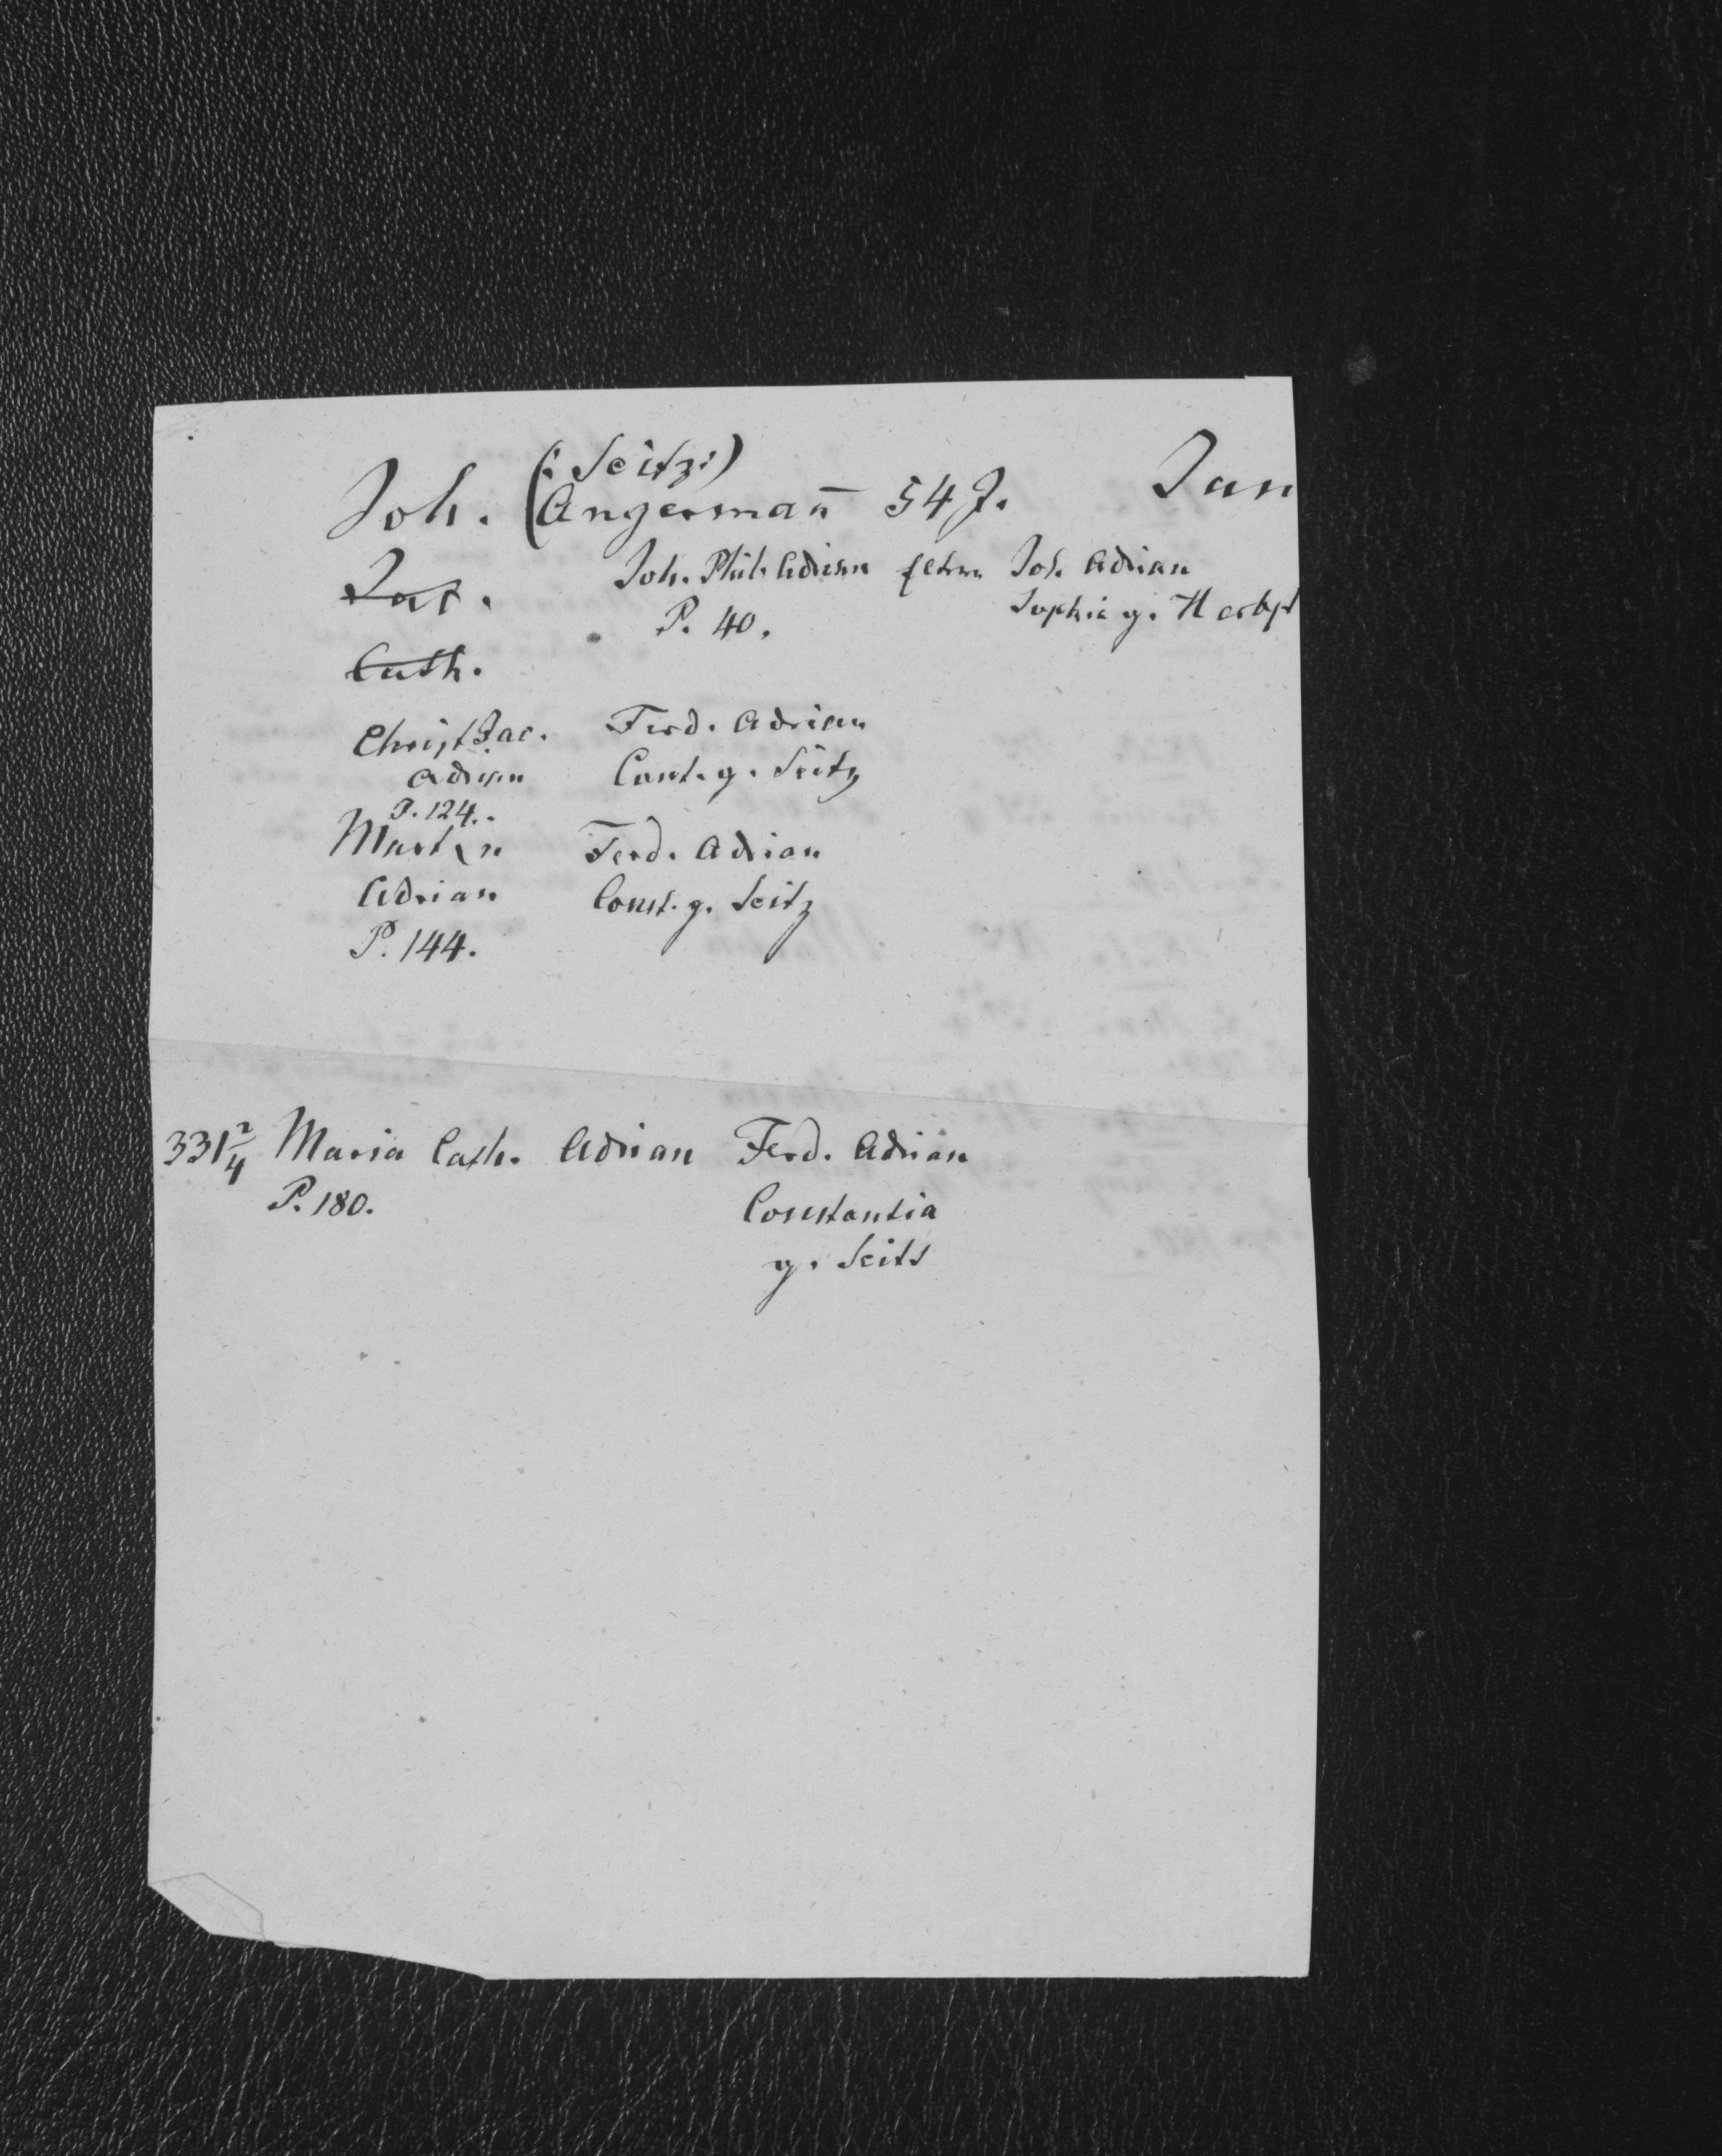 (: Seitz :)
Joh. (Angermañ 54 J. Jan
Jac. Joh. Phil. Adrian Joh. Adrian
P. 40. Sophia g. Herbst
Cath.
Christ Jac. Ferd. Adrian
Adrian Const. g. Seitz
P. 124.
Martin Ferd. Adrian
Adrian Const. g. Seitz
P. 144.
331 2/4 Maria Cath. Adrian Ferd. Adrian
P. 180. Constantia
g. Seits